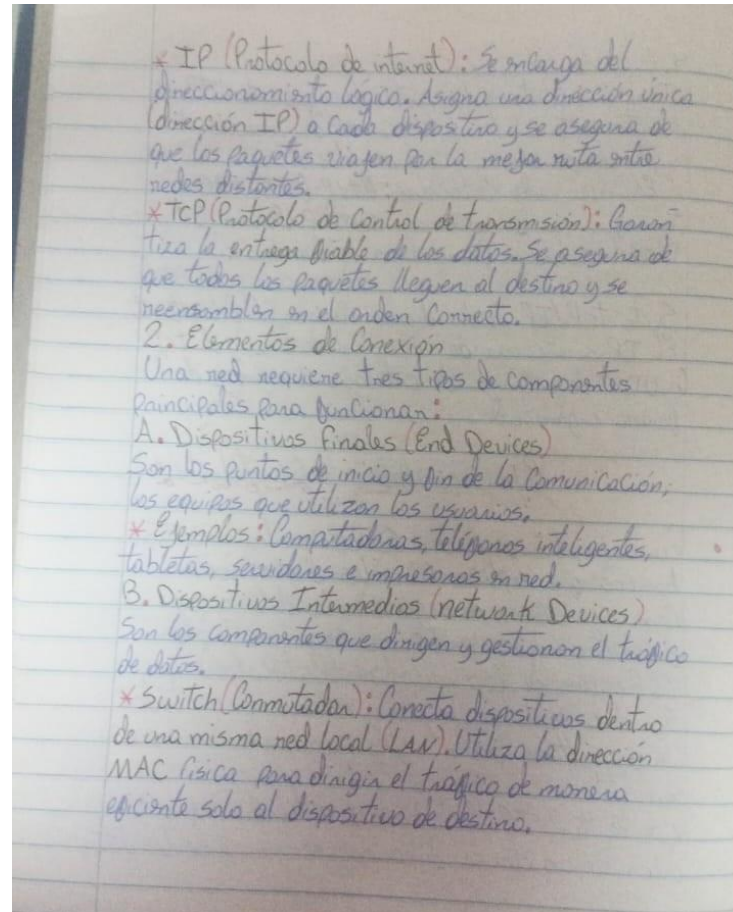 * IP (Protocolo de internet): Se encarga del
direccionamiento lógico. Asigna una dirección única
(dirección IP) a cada dispositivo y se asegura de
que los paquetes viajen por la mejor ruta entre
redes distantes.
* TCP (Protocolo de control de transmisión): Garan
tiza la entrega fiable de los datos. Se asegura de
que todos los paquetes lleguen al destino y se
reensamblen en el orden Correcto.
2. Elementos de Conexión
Una red requiere tres tipos de componentes
Principales para funcionar:
A. Dispositivos finales (End Devices)
Son los puntos de inicio y fin de la Comunicación;
los equipos que utilizan los usuarios.
* Ejemplos: Computadoras, teléfonos inteligentes,
tabletas, servidores e impresoras en red.
B. Dispositivos Intermedios (network Devices)
Son los componentes que dirigen y gestionan el tráfico
de datos.
* Switch (Conmutador): Conecta dispositivos dentro
de una misma red local (LAN). Utiliza la dirección
MAC física para dirigir el tráfico de manera
eficiente solo al dispositivo de destino.